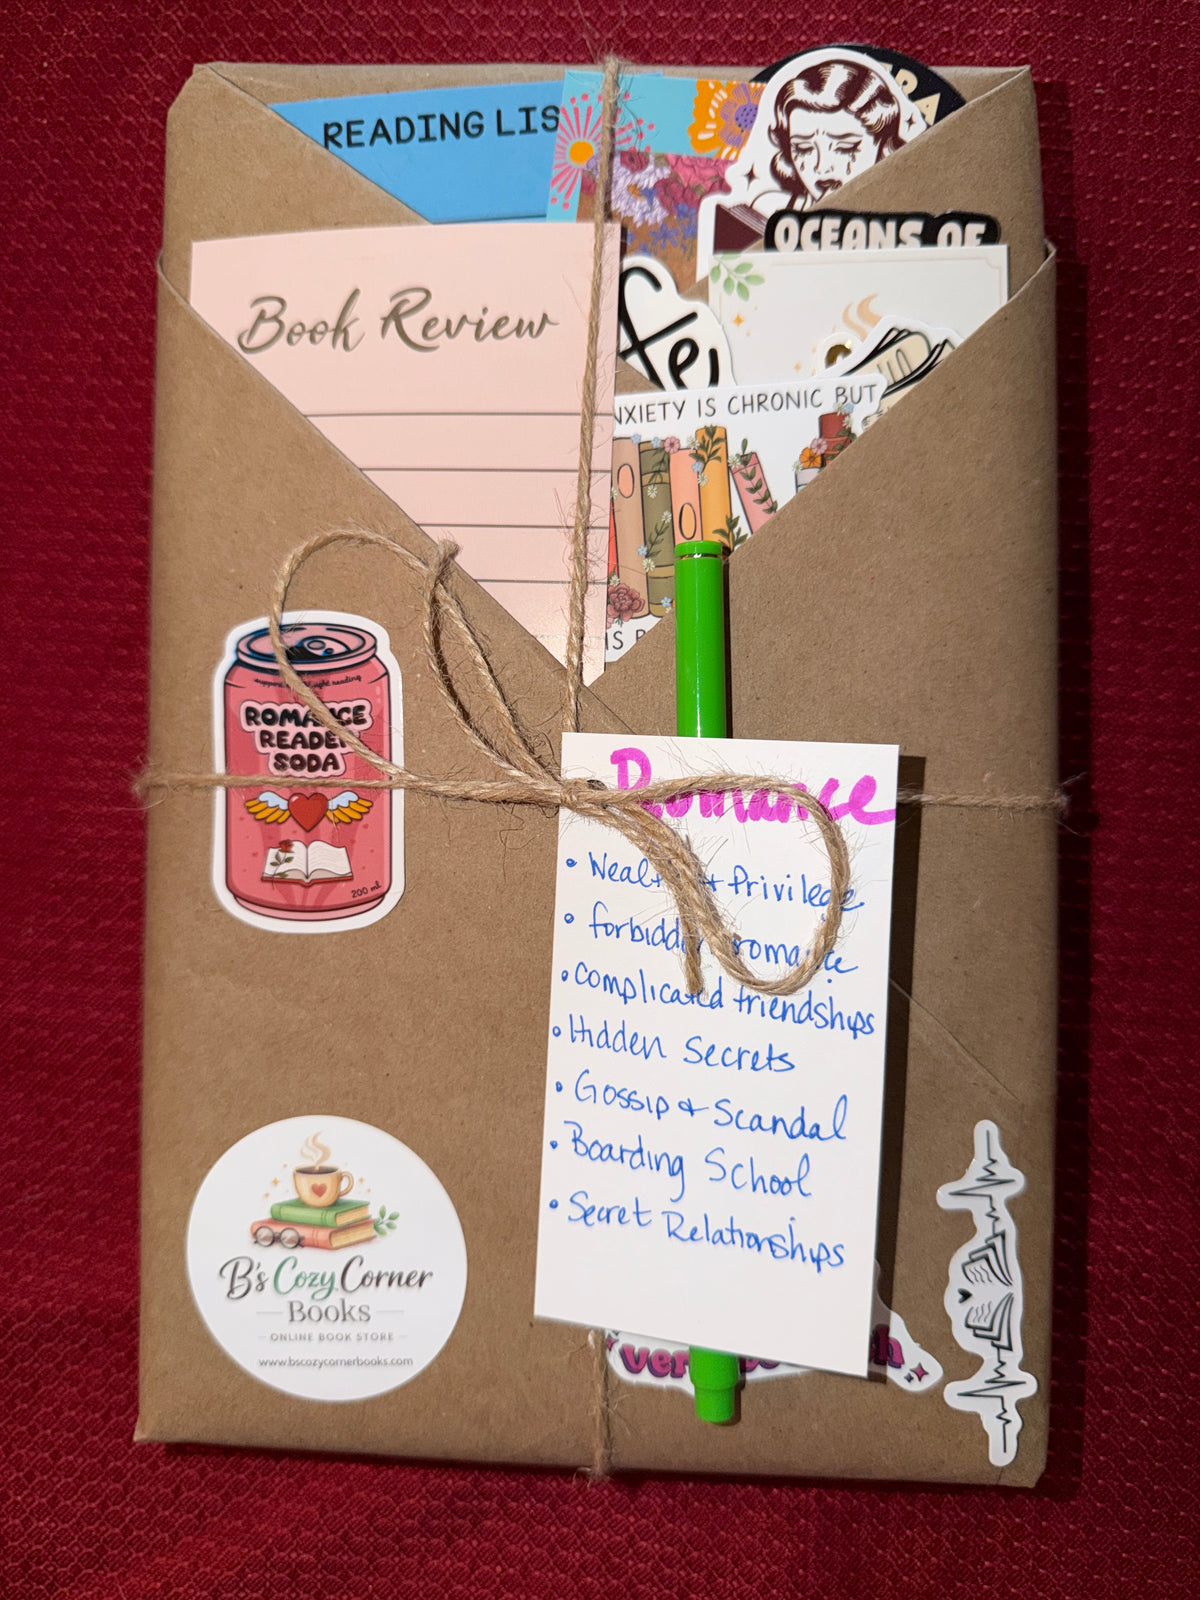 READING LIS
ERA
OCEANS OF
Book Review
NXIETY IS CHRONIC BUT
IS
ROMANCE
READER
SODA
200 ml
Romance
• Wealth + Privilege
• forbidden romance
• complicated friendships
• Hidden Secrets
• Gossip & Scandal
• Boarding School
• Secret Relationships
B's Cozy Corner
Books
ONLINE BOOK STORE
www.bscozycornerbooks.com
ver